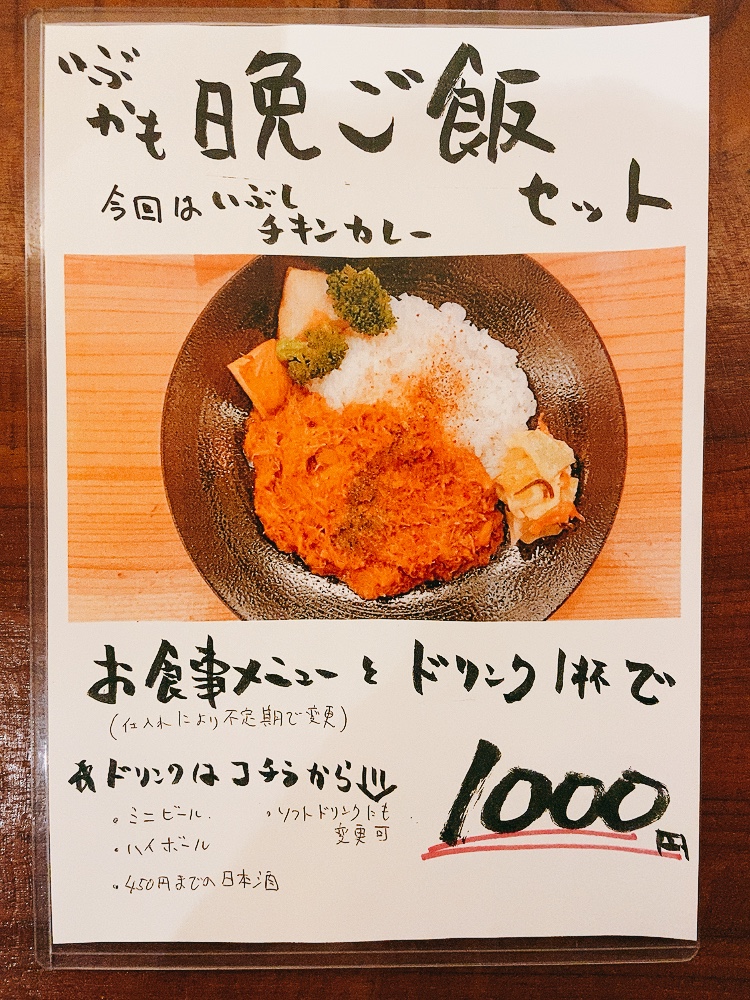 いぶかも 晩ご飯
セット
今回は いぶし
チキンカレー
お食事メニューと ドリンク1杯で
(仕入れにより不定期で変更)
ドリンクはコチラから
1000円
・ミニビール
・ハイボール
・450円までの日本酒
・ソフトドリンクにも
変更可